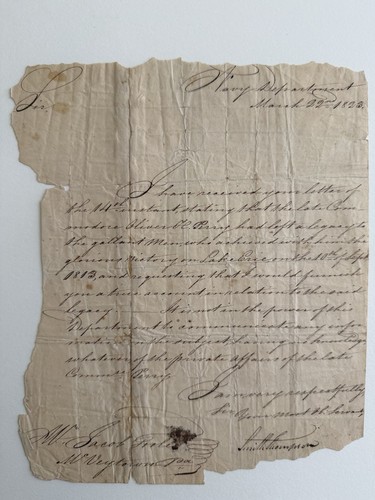 Navy Department
March 22nd 1823.
Sir,
I have received your letter of
the 14th instant, stating that the late Com
modore Oliver H. Perry had left a legacy to
the gallant Men who achieved with him the
glorious victory on Lake Erie on the 10th of Sept
1813, and requesting that I would furnish
you a true account in relation to the said
legacy. It is not in the power of this
Department to communicate any infor
mation on the subject, having no knowledge
whatever of the private affairs of the late
Commre Perry.
I am very respectfully
Sir Your Most Ob. Servt,
Smith Thompson
Mr. Jacob
McVeytown Paa